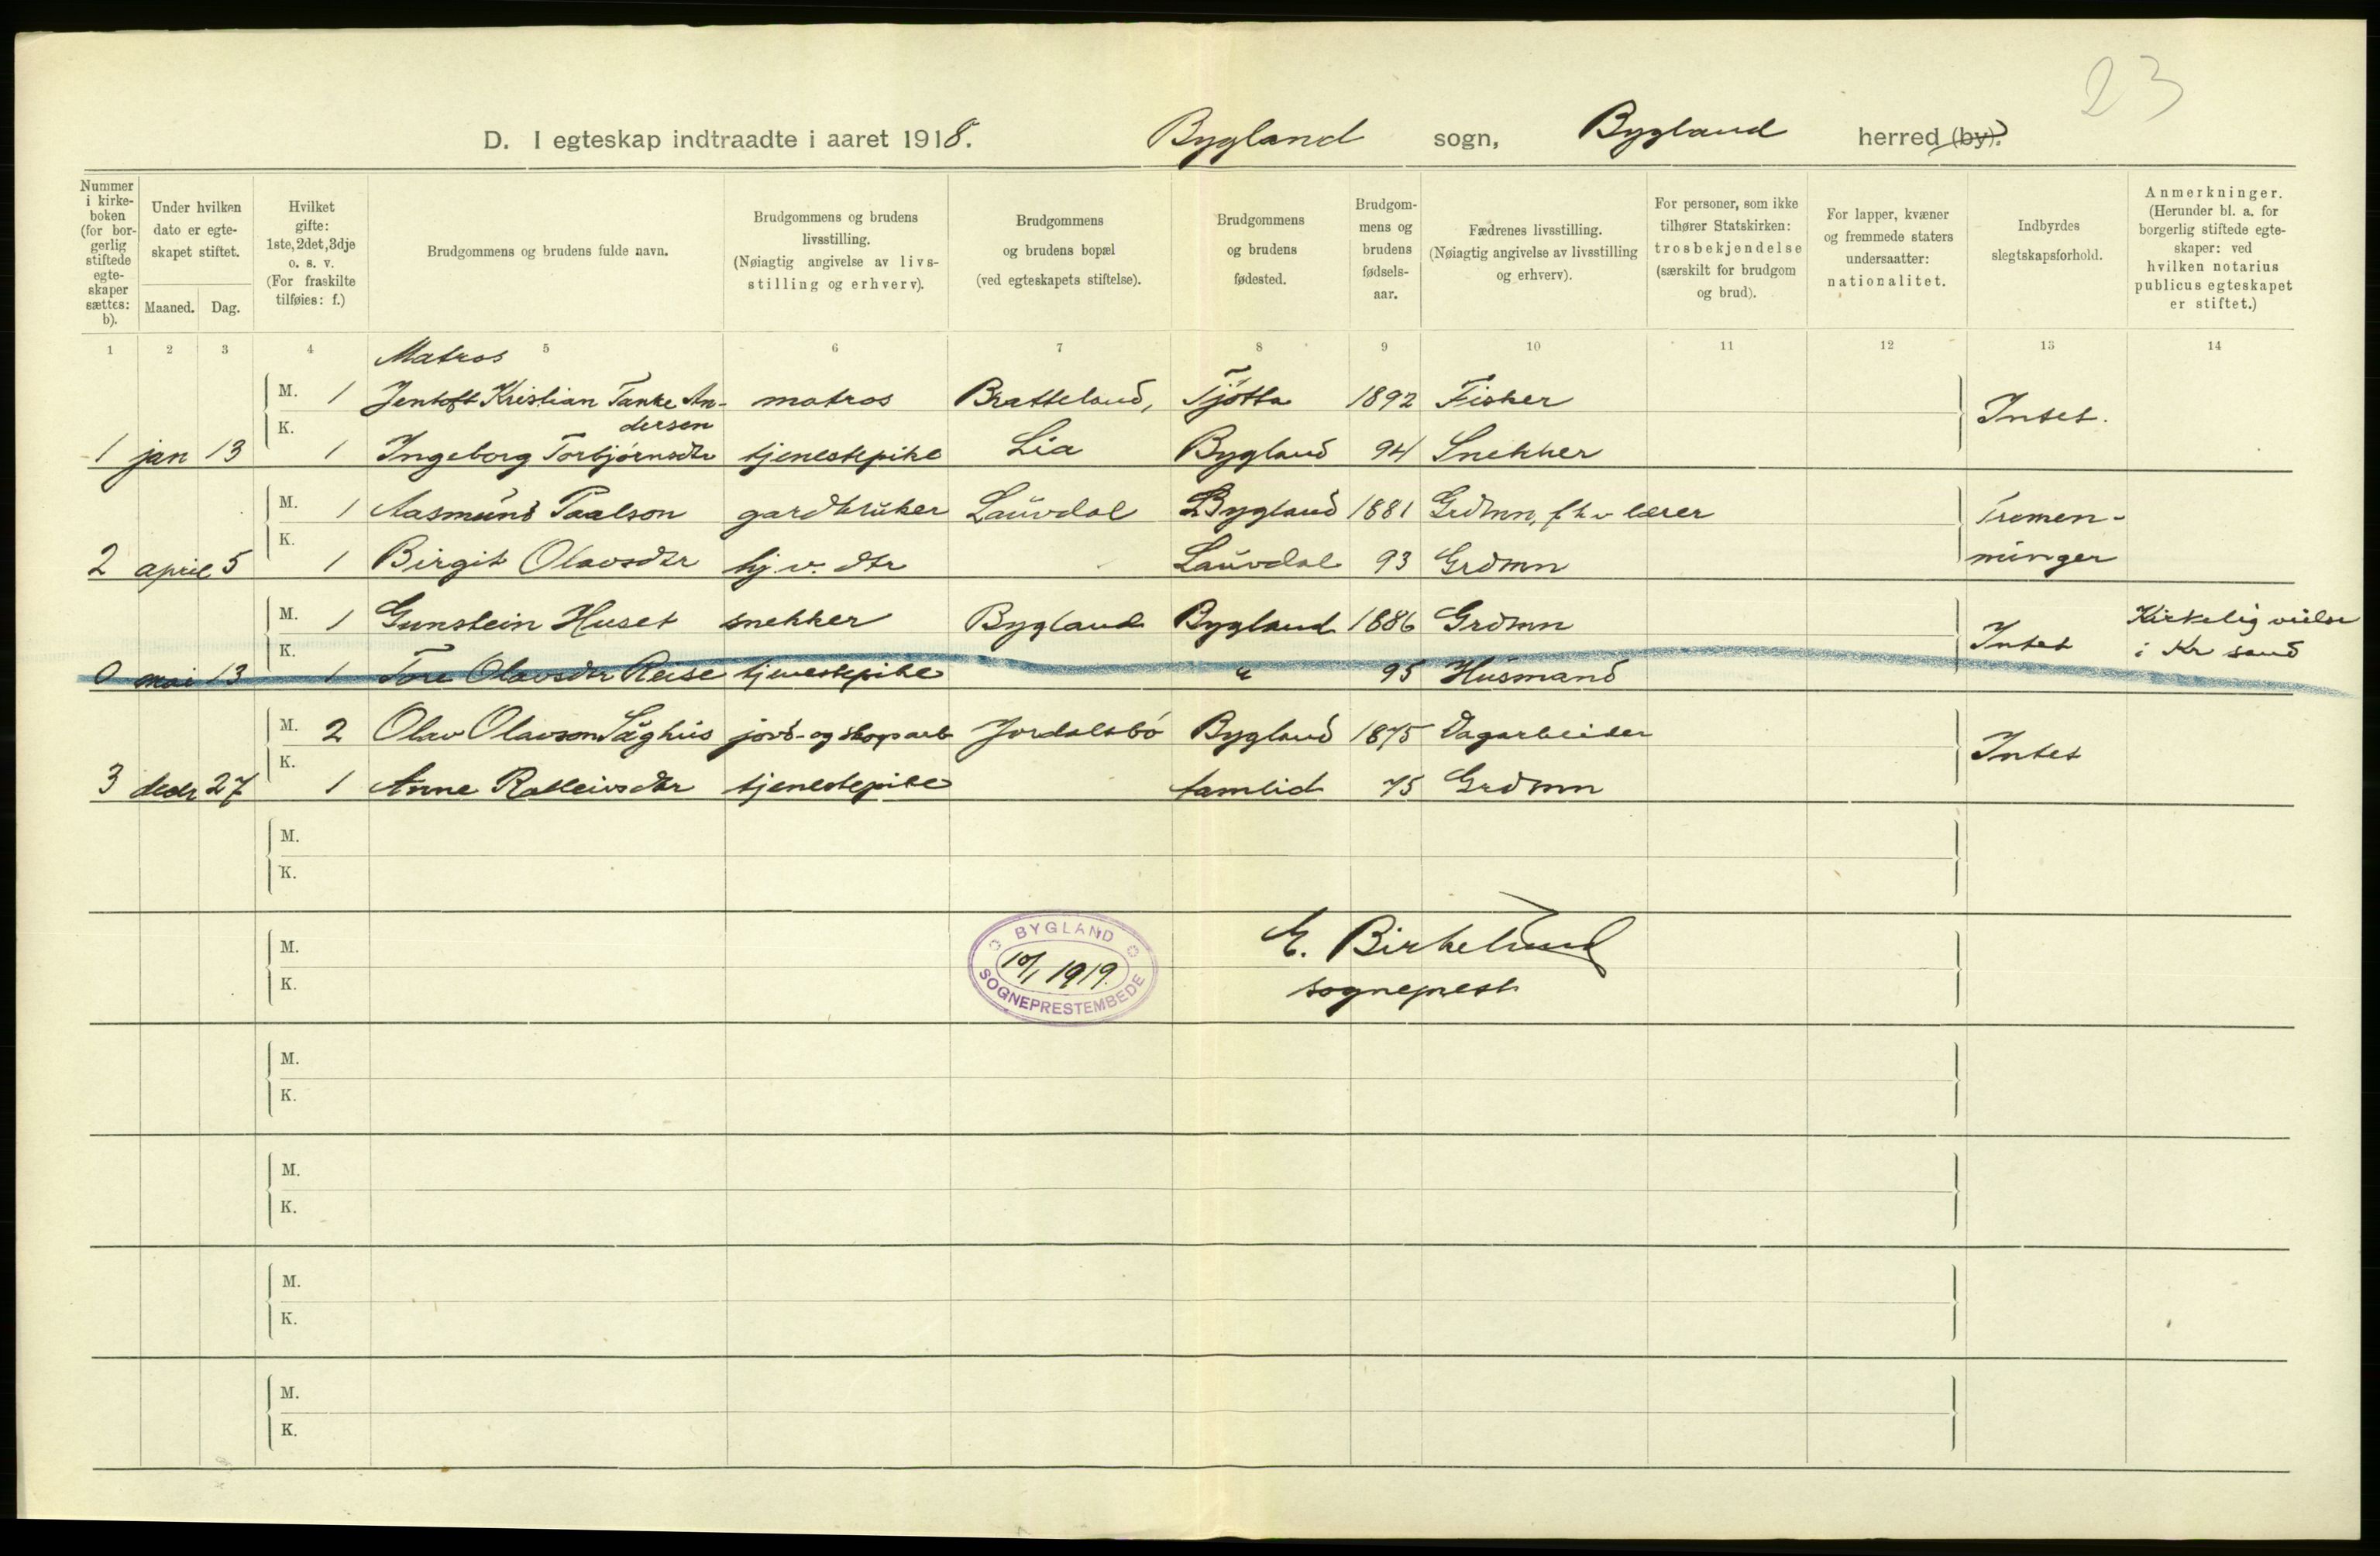 23
D. I egteskap indtraadte i aaret 1918. Bygland sogn, Bygland herred (by).
Nummer i kirke-boken (for bor-gerlig stiftede egte-skaper sættes: b).
Under hvilken dato er egte-skapet stiftet.
Maaned. Dag.
Hvilket gifte: 1ste, 2det, 3dje o. s. v. (For fraskilte tilføies: f.)
Brudgommens og brudens fulde navn.
Brudgommens og brudens livsstilling. (Nøiagtig angivelse av livs-stilling og erhverv).
Brudgommens og brudens bopæl (ved egteskapets stiftelse).
Brudgommens og brudens fødested.
Brudgom-mens og brudens fødsels-aar.
Fædrenes livsstilling. (Nøiagtig angivelse av livsstilling og erhverv).
For personer, som ikke tilhører Statskirken: trosbekjendelse (særskilt for brudgom og brud).
For lapper, kvæner og fremmede staters undersaatter: nationalitet.
Indbyrdes slegtskapsforhold.
Anmerkninger. (Herunder bl. a. for borgerlig stiftede egte-skaper: ved hvilken notarius publicus egteskapet er stiftet.)
1 2 3 4 5 6 7 8 9 10 11 12 13 14
Matros
M. 1 Jentoft Kristian Tanke An- matros Bratteland, Tjötta 1892 Fisker Intet.
dersen
1 jan 13 K. 1 Ingeborg Torbjörnsdtr tjenestepike Lia Bygland 94 Snekker
M. 1 Aasmund Paalson gardbruker Lauvdal Bygland 1881 Grdmn, fhv lærer Tremen-
2 april 5 K. 1 Birgit Olavsdtr hj.v. dtr Lauvdal 93 Grdmn minger
M. 1 Gunstein Huset snekker Bygland Bygland 1886 Grdmn Intet Kirkelig vielse
i Kr sand
0 mai 13 K. 1 Tore Olavsdtr Reise tjenestepike " 95 Husmand
M. 2 Olav Olavson Saghus jord- og skogsarb Jordalsbö Bygland 1875 Dagarbeider Intet
3 decbr 27 K. 1 Anne Rolleivsdtr tjenestepike 75 Grdmn
M.
K.
M.
K.
BYGLAND
10/1 1919.
SOGNEPRESTEMBEDE
E. Birkelund
sogneprest
M.
K.
M.
K.
M.
K.
M.
K.